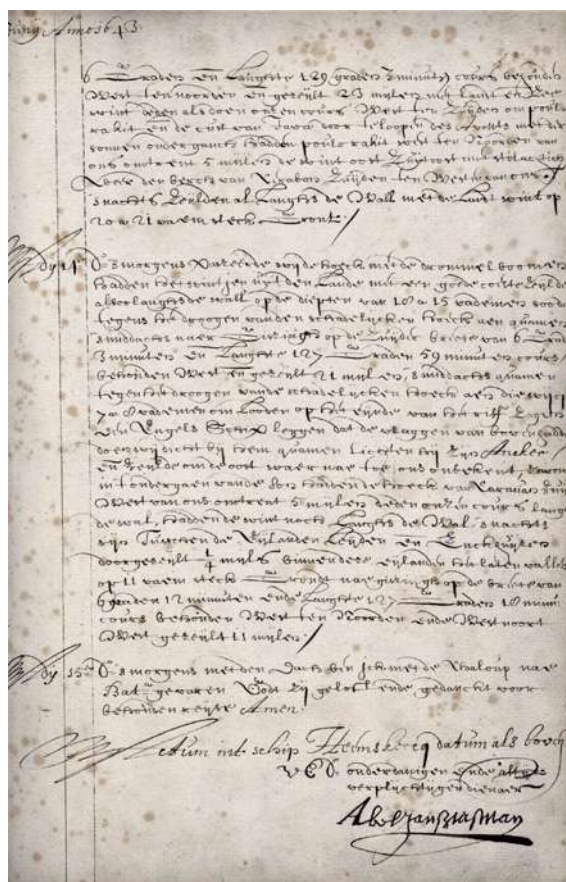 Juny Anno 1643
6 Graden en Langhte 129 graden minuten cours behouden
West ten noorden en geseylt 23 mylen met lant en Zee
wint deden als doen onsen cours West ten Zuyden om poulo
rackit en de cust van Java voor te loopen des avonts met der
sonnen onderganck hadden poulo rackit West ten Noorden van
ons omtrent 5 mylen de wint oost
den berch van Zuyden ten Westen van ons
snachts Zeylden al Langhs de Wall met de Lant wint op
20 a 21 vaem steck Gront /
Dy 14en Do smorgens passeerde wy de hoeck met de drommel boomen
hadden het stijf uyt den Lande met een goede coelte Zeylde
alsoo langhs de wall op de diepten van 18 a 15 vademen
tegens het droogen van den schadelycken hoeck aen quamen
smiddachs naer Gissingh op de Zuyder breete van 6 Graden
minuten en Langhte 127 Graden 59 minuten cours
behouden West en geseylt 21 mylen, smiddachs quamen
tegen het droogen van de schadelycken hoeck aen die wy op
7 a 8 vademen om Looden op het eynde van het riff Lagen
een Engels Schip leggen dat de vlaggen van boven hadde
doen wy dicht by hem quamen Lichten hy Zijn Ancker
en Zeylde om de oost waer nae toe is ons onbekent,
int ondergaen van de Son hadden de hoeck van Carawan Zuyd
West van ons omtrent 5 mylen deden onsen cours langs
de wal, hadden de wint noch Langhs de Wal snachts
sijn Tusschen de Eylanden Leyden en Enckhuysen
doorgeseylt 1/4 myls binnen dese eylanden het laten vallen
op 11 vaem steck Gront nae gissingh op de breete van
6 graden 12 minuten ende Langhte 127 Graden 18 minuten
cours behouden West ten Noorden ende West noort
West geseylt 11 mylen /
Dy 15en Do smorgens met den Dach bin ick met de Chaloup nae
Bata gevaren Godt Zy gelooft ende gedanckt voor
behouden reyse Amen
Actum int schip Heemskercq datum als boven
U E Do onderdanigen ende altyt
verplichtigen dienaer
Abel Jansz Tasman